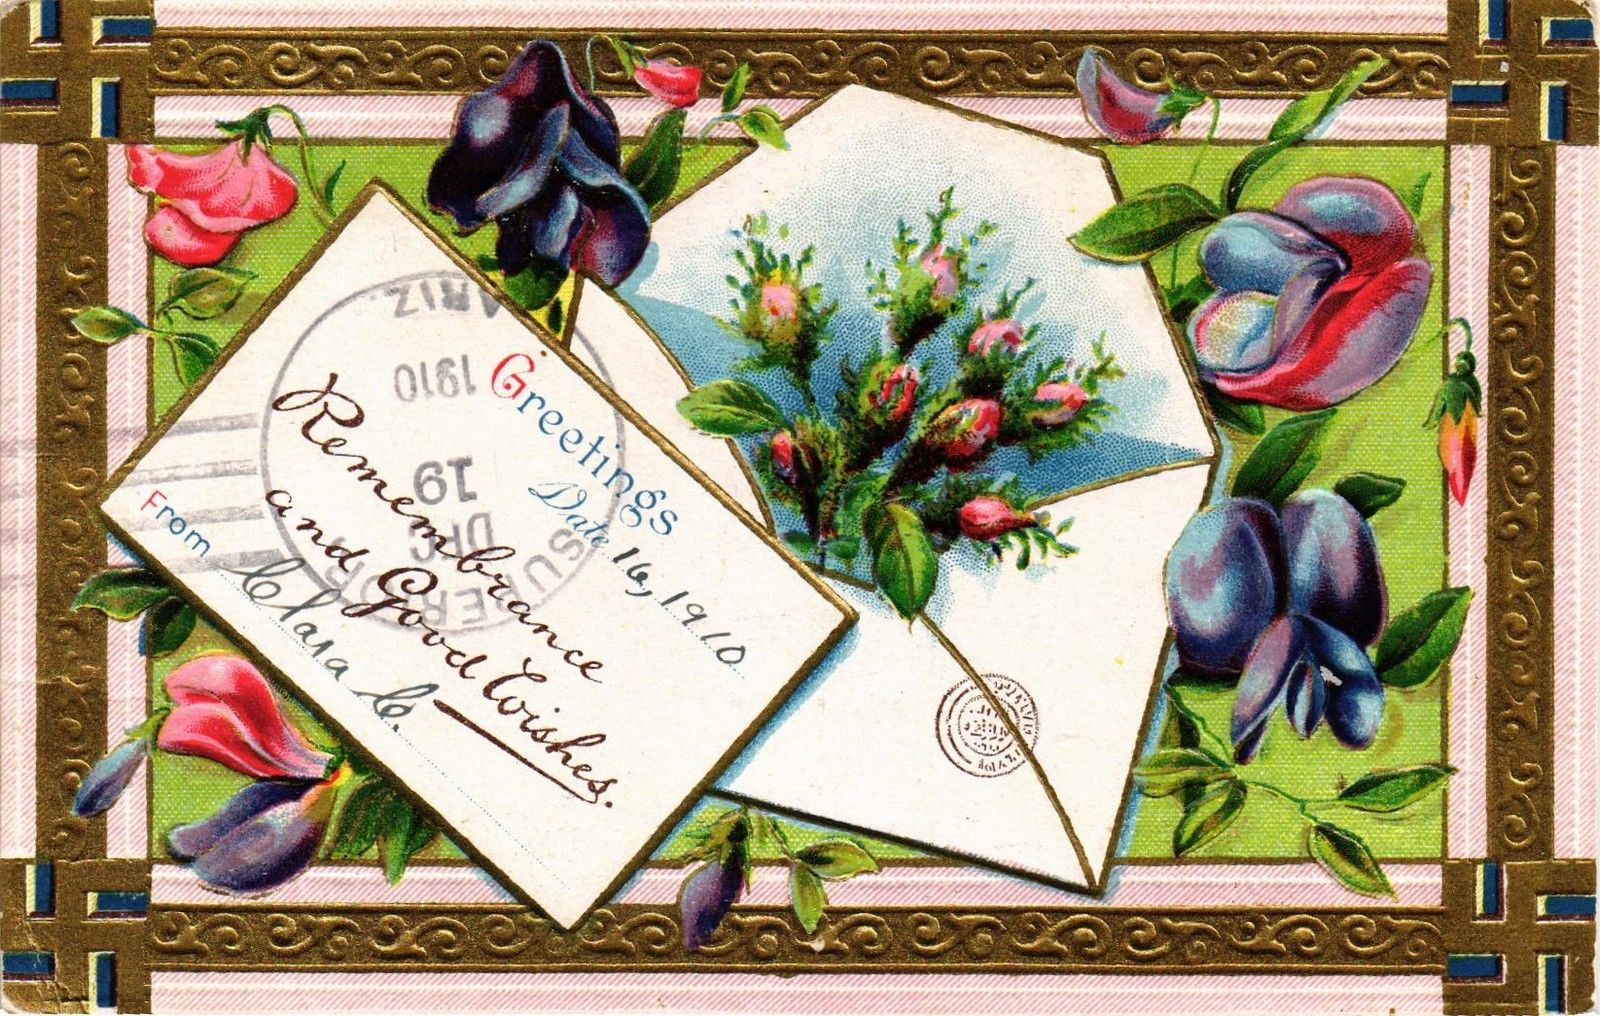 Greetings
Date 16, 1910
Remembrance
and Good Wishes.
From Clara C.
SUPERIOR
ARIZ.
DEC
19
1910